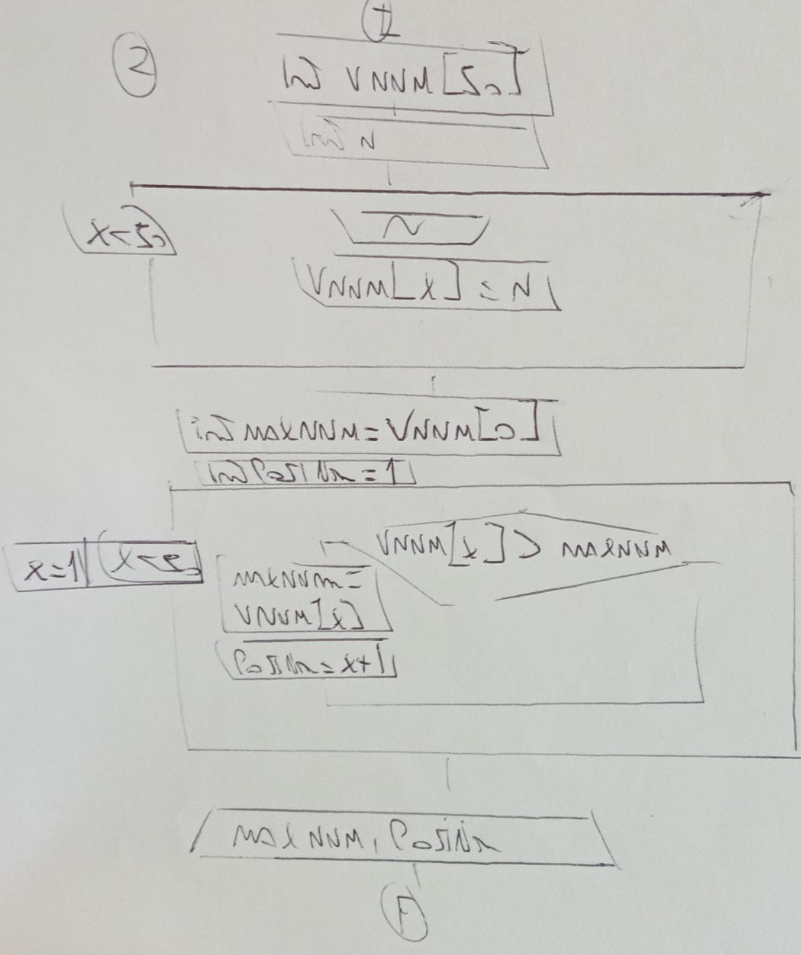 I
2
int VNUM[50]
int N
x<50
N
VNUM[x] = N
int maxNUM = VNUM[0]
int PosiNu = 1
x=1 x<50
VNUM[x] > maxNUM
maxNUM =
VNUM[x]
PosiNu = x+1
maxNUM, PosiNu
F